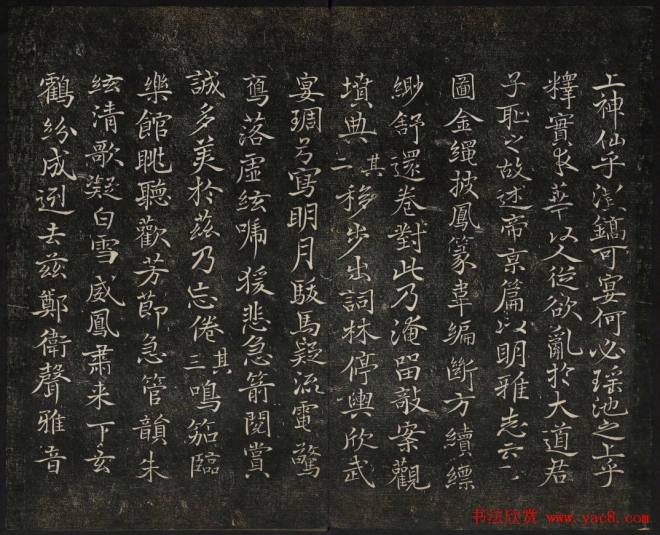 上神仙乎灃鎬可宴何必瑶池之上乎
釋實求華以人從欲亂於大道君
子耻之故述帝京篇以明雅志云
圖金繩披鳳篆韋編斷方續縹
緲舒還卷對此乃淹留敧案觀
墳典其二移步出詞林停輿欣武
宴琱弓寫明月駿馬疑流電驚
鴈落虛弦啼猿悲急箭閱賞
誠多美於茲乃忘倦其三鳴笳臨
樂館眺聽歡芳節急管韻朱
絃清歌凝白雪威鳳肅来下玄
鶴紛成列去茲鄭衛聲雅音
书法欣赏 www.yac8.com